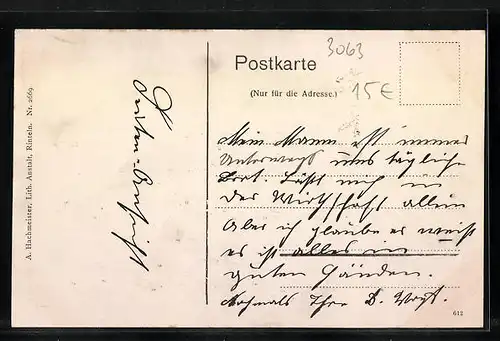 3063
Postkarte
15€
(Nur für die Adresse.)
Mein Mann ist immer
Unterwegs ums tägliche
Brot. Läßt mich in
der Wirthschaft allein
Aber ich glaube er weiß
es ist alles in
guten Händen.
Nochmals Ihre B. Vogt.
612
A. Hachmeister, Lith. Anstalt, Rinteln. Nr. 2669